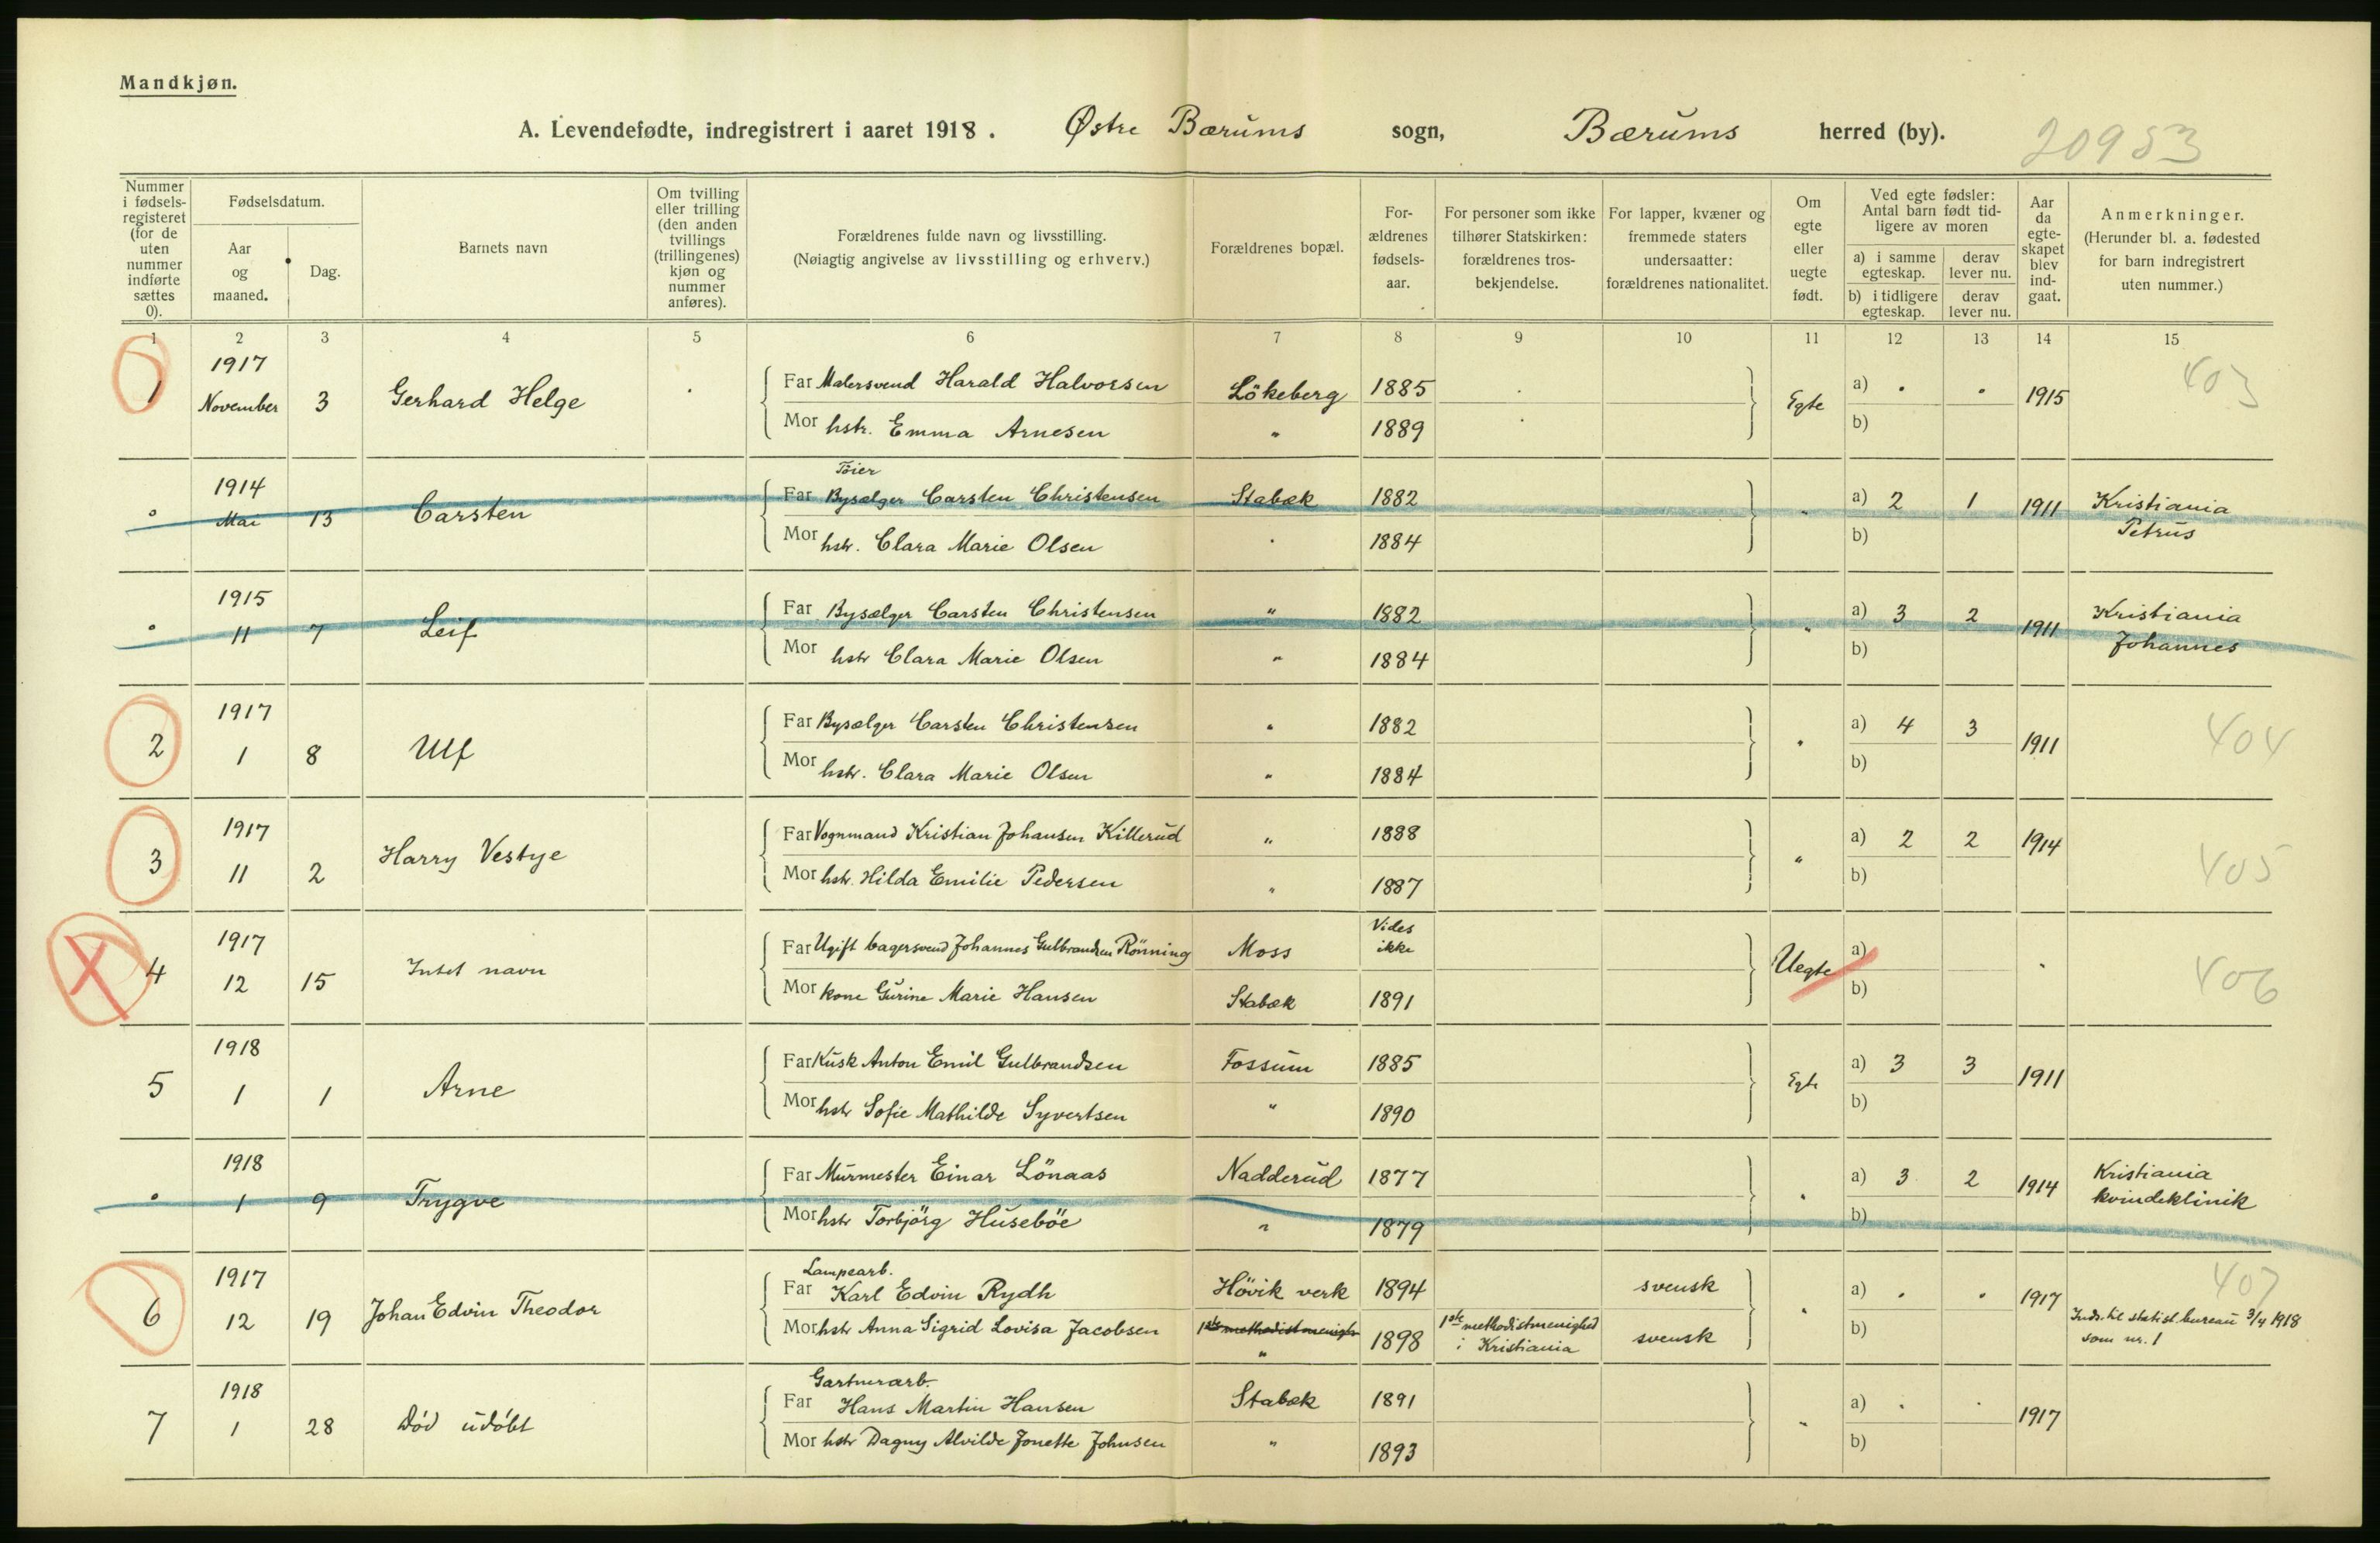 Mandkjøn.
A. Levendefødte, indregistrert i aaret 1918. Østre Bærums sogn, Bærums herred (by). 20953
Nummer i fødsels-registeret (for de uten nummer indførte sættes 0).
Fødselsdatum.
Aar og maaned.
Dag.
Barnets navn
Om tvilling eller trilling (den anden tvillings (trillingenes) kjøn og nummer anføres).
Forældrenes fulde navn og livsstilling.
(Nøiagtig angivelse av livsstilling og erhverv.)
Forældrenes bopæl.
For-ældrenes fødsels-aar.
For personer som ikke tilhører Statskirken: forældrenes tros-bekjendelse.
For lapper, kvæner og fremmede staters undersaatter: forældrenes nationalitet.
Om egte eller uegte født.
Ved egte fødsler: Antal barn født tid-ligere av moren
a) i samme egteskap. derav lever nu.
b) i tidligere egteskap. derav lever nu.
Aar da egte-skapet blev ind-gaat.
Anmerkninger.
(Herunder bl. a. fødested for barn indregistrert uten nummer.)
1 2 3 4 5 6 7 8 9 10 11 12 13 14 15
1917 403
1 November 3 Gerhard Helge Far Malersvend Harald Halvorsen Lökeberg 1885 Egte a) 1915
Mor hstr. Emma Arnesen " 1889 b)
1914 Töier
0 Mai 13 Carsten Far Bysælger Carsten Christensen Stabæk 1882 " a) 2 1 1911 Kristiania
Mor hstr. Clara Marie Olsen 1884 b) Petrus
1915
0 11 7 Leif Far Bysælger Carsten Christensen " 1882 " a) 3 2 1911 Kristiania
Mor hstr Clara Marie Olsen " 1884 b) Johannes
1917
2 1 8 Ulf Far Bysælger Carsten Christensen " 1882 " a) 4 3 1911 404
Mor hstr. Clara Marie Olsen " 1884 b)
1917
3 11 2 Harry Vestye Far Vognmand Kristian Johansen Killerud " 1888 " a) 2 2 1914 405
Mor hstr. Hilda Emilie Pedersen " 1887 b)
1917 Vides ikke
4 12 15 Intet navn Far Ugift bagersvend Johannes Gulbrandsen Rönning Moss Uegte a) 406
Mor kone Gurine Marie Hansen Stabæk 1891 b)
1918
5 1 1 Arne Far Kusk Anton Emil Gulbrandsen Fossum 1885 Egte a) 3 3 1911
Mor hstr Sofie Mathilde Syvertsen " 1890 b)
1918
0 1 9 Trygve Far Murmester Einar Lönaas Nadderud 1877 " a) 3 2 1914 Kristiania
Mor hstr Torbjörg Huseböe " 1879 b) kvindeklinik
1917 Lampearb. 407
6 12 19 Johan Edvin Theodor Far Karl Edvin Rydh Hövik verk 1894 svensk " a) 1917
Mor hstr Anna Sigrid Lovisa Jacobsen 1ste methodistmenigh " 1898 1ste methodistmenighed i Kristiania svensk b) Inds. til statist. bureau 3/4 1918 som nr. 1
1918 Gartnerarb.
7 1 28 Död udöbt Far Hans Martin Hansen Stabæk 1891 " a) 1917
Mor hstr Dagny Alvilde Jonette Johnsen " 1893 b)